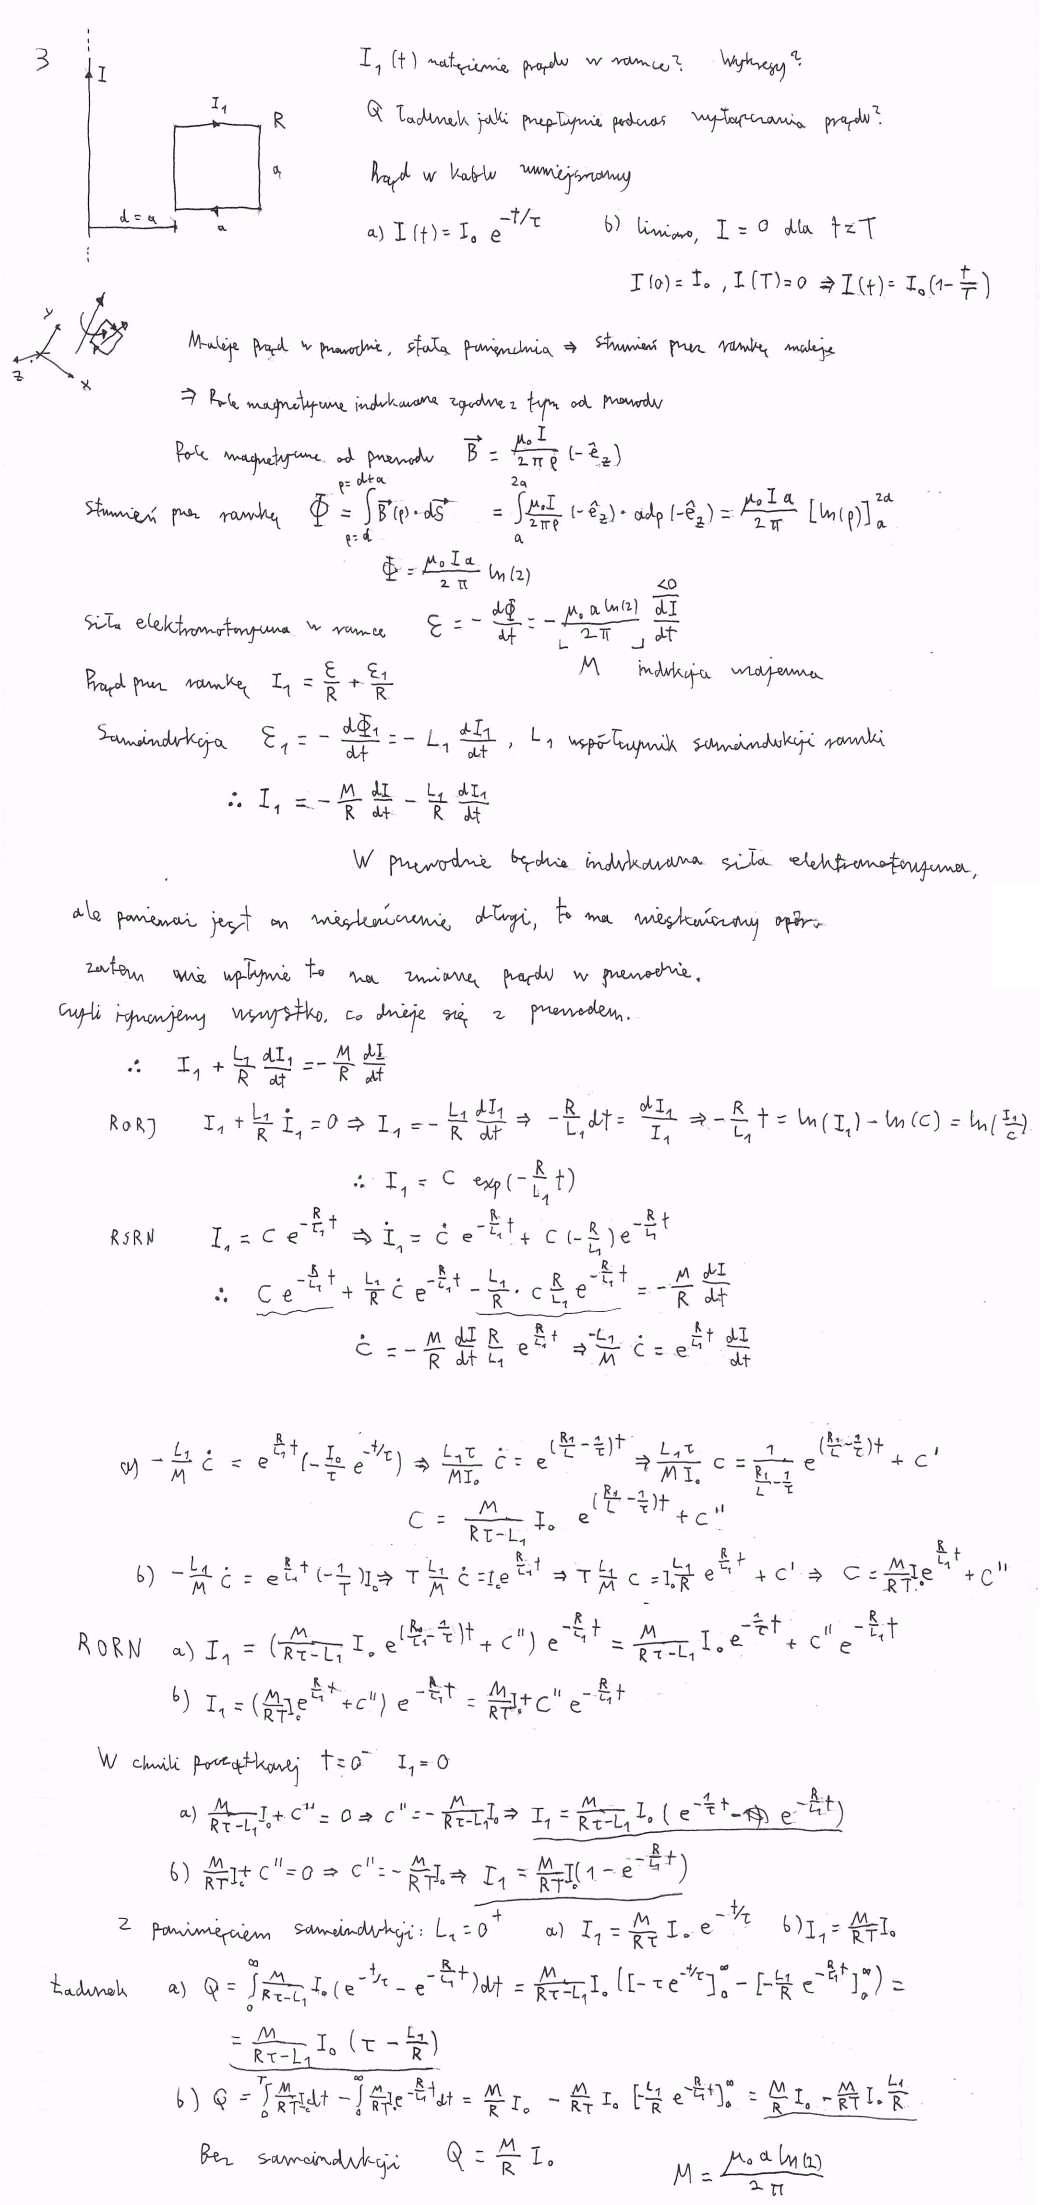 3
I
I₁
R
a
d = a
a
I₁(t) natężenie prądu w ramce? Wykresy?
Q ładunek jaki przepłynie podczas wyłączania prądu?
Prąd w kablu zmniejszamy
a) I(t) = I₀ e^{-t/τ} b) liniowo, I = 0 dla t=T
I(0) = I₀, I(T)=0 ⇒ I(t) = I₀(1-t/T)
y
z
x
Maleje prąd w przewodzie, stała powierzchnia ⇒ strumień przez ramkę maleje
⇒ Pole magnetyczne indukowane zgodne z tym od przewodu
Pole magnetyczne od przewodu B⃗ = μ₀I/2πρ (-ê_z)
Strumień przez ramkę Φ = ∫_{ρ=d}^{ρ=d+a} B⃗(ρ)·dS⃗ = ∫_a^{2a} μ₀I/2πρ (-ê_z)·adρ(-ê_z) = μ₀Ia/2π [ln(ρ)]_a^{2a}
Φ = μ₀Ia/2π ln(2)
siła elektromotoryczna w ramce ℰ = -dΦ/dt = -μ₀ a ln(2)/2π dI/dt <0
M indukcja wzajemna
Prąd przez ramkę I₁ = ℰ/R + ℰ₁/R
Samoindukcja ℰ₁ = -dΦ₁/dt = -L₁ dI₁/dt, L₁ współczynnik samoindukcji ramki
∴ I₁ = -M/R dI/dt - L₁/R dI₁/dt
W przewodzie będzie indukowana siła elektromotoryczna,
ale ponieważ jest on nieskończenie długi, to ma nieskończony opór
zatem nie wpłynie to na zmianę prądu w przewodzie.
Czyli ignorujemy wszystko, co dzieje się z przewodem.
∴ I₁ + L₁/R dI₁/dt = -M/R dI/dt
RORJ I₁ + L₁/R İ₁ = 0 ⇒ I₁ = -L₁/R dI₁/dt ⇒ -R/L₁ dt = dI₁/I₁ ⇒ -R/L₁ t = ln(I₁) - ln(C) = ln(I₁/C)
∴ I₁ = C exp(-R/L₁ t)
RSRN I₁ = C e^{-R/L₁ t} ⇒ İ₁ = Ċ e^{-R/L₁ t} + C(-R/L₁)e^{-R/L₁ t}
∴ C e^{-R/L₁ t} + L₁/R Ċ e^{-R/L₁ t} - L₁/R · C R/L₁ e^{-R/L₁ t} = -M/R dI/dt
Ċ = -M/R dI/dt R/L₁ e^{R/L₁ t} ⇒ -L₁/M Ċ = e^{R/L₁ t} dI/dt
a) -L₁/M Ċ = e^{R/L₁ t}(-I₀/τ e^{-t/τ}) ⇒ L₁τ/MI₀ Ċ = e^{(R₁/L - 1/τ)t} ⇒ L₁τ/MI₀ C = 1/(R₁/L - 1/τ) e^{(R₁/L - 1/τ)t} + C'
C = M/(Rτ-L₁) I₀ e^{(R₁/L - 1/τ)t} + C''
b) -L₁/M Ċ = e^{R/L₁ t}(-1/T)I₀ ⇒ T L₁/M Ċ = I₀e^{R/L₁ t} ⇒ T L₁/M C = I₀ L₁/R e^{R/L₁ t} + C' ⇒ C = M/RT I₀ e^{R/L₁ t} + C''
RORN a) I₁ = (M/(Rτ-L₁) I₀ e^{(R/L₁ - 1/τ)t} + C'') e^{-R/L₁ t} = M/(Rτ-L₁) I₀ e^{-1/τ t} + C'' e^{-R/L₁ t}
b) I₁ = (M/RT I₀ e^{R/L₁ t} + C'') e^{-R/L₁ t} = M/RT I₀ + C'' e^{-R/L₁ t}
W chwili początkowej t=0⁻ I₁=0
a) M/(Rτ-L₁) I₀ + C'' = 0 ⇒ C'' = -M/(Rτ-L₁) I₀ ⇒ I₁ = M/(Rτ-L₁) I₀ (e^{-1/τ t} - e^{-R/L₁ t})
b) M/RT I₀ + C'' = 0 ⇒ C'' = -M/RT I₀ ⇒ I₁ = M/RT I₀(1 - e^{-R/L₁ t})
Z pominięciem samoindukcji: L₁=0⁺ a) I₁ = M/Rτ I₀ e^{-t/τ} b) I₁ = M/RT I₀
Ładunek a) Q = ∫_0^∞ M/(Rτ-L₁) I₀(e^{-t/τ} - e^{-R/L₁ t})dt = M/(Rτ-L₁) I₀ ([-τe^{-t/τ}]_0^∞ - [-L₁/R e^{-R/L₁ t}]_0^∞) =
= M/(Rτ-L₁) I₀ (τ - L₁/R)
b) Q = ∫_0^T M/RT I₀dt - ∫_0^∞ M/RT I₀e^{-R/L₁ t}dt = M/R I₀ - M/RT I₀ [-L₁/R e^{-R/L₁ t}]_0^∞ = M/R I₀ - M/RT I₀ L₁/R
Bez samoindukcji Q = M/R I₀
M = μ₀ a ln(2)/2π